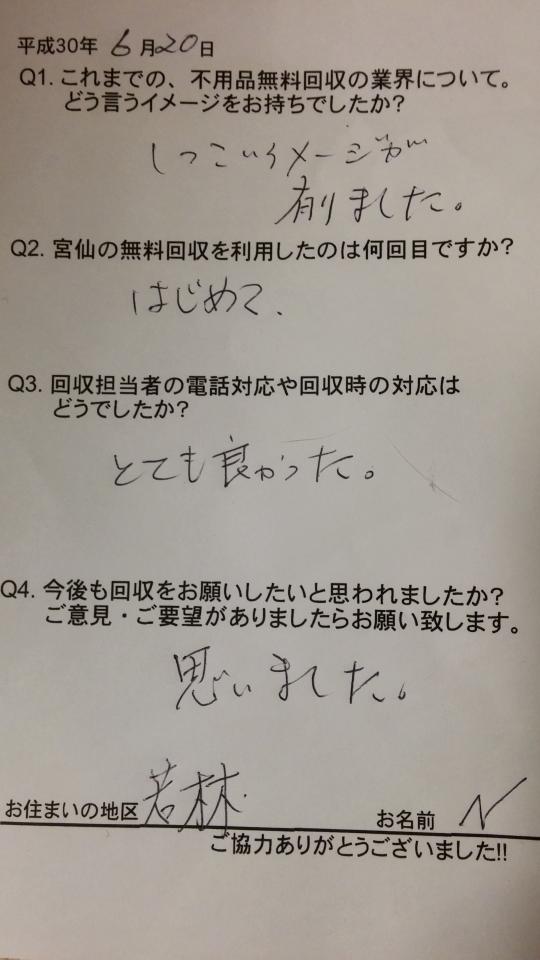 平成30年 6月20日
Q1. これまでの、不用品無料回収の業界について。
どう言うイメージをお持ちでしたか?
しつこいイメージが
有りました。
Q2. 宮仙の無料回収を利用したのは何回目ですか?
はじめて、
Q3. 回収担当者の電話対応や回収時の対応は
どうでしたか?
とても良かった。
Q4. 今後も回収をお願いしたいと思われましたか?
ご意見・ご要望がありましたらお願い致します。
思いました。
お住まいの地区 若林 お名前 N
ご協力ありがとうございました!!